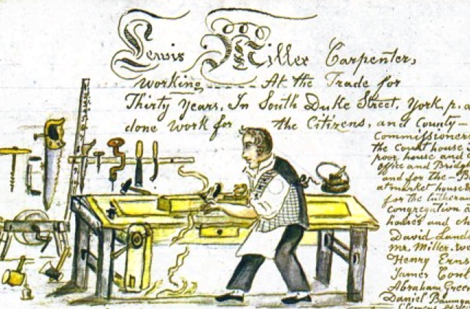 Lewis Miller Carpenter,
working At the Trade for
Thirty Years, In South Duke Street, York, p. a.
done work for the Citizens, and County—
Commissioner
the Court house
poor house and
office and Brid
and for the
at market house
for the Lutheran
Congregation
houses and
David Land
mr. Miller, w
Henry Erns
James Con
Abraham Gree
Daniel Baumga